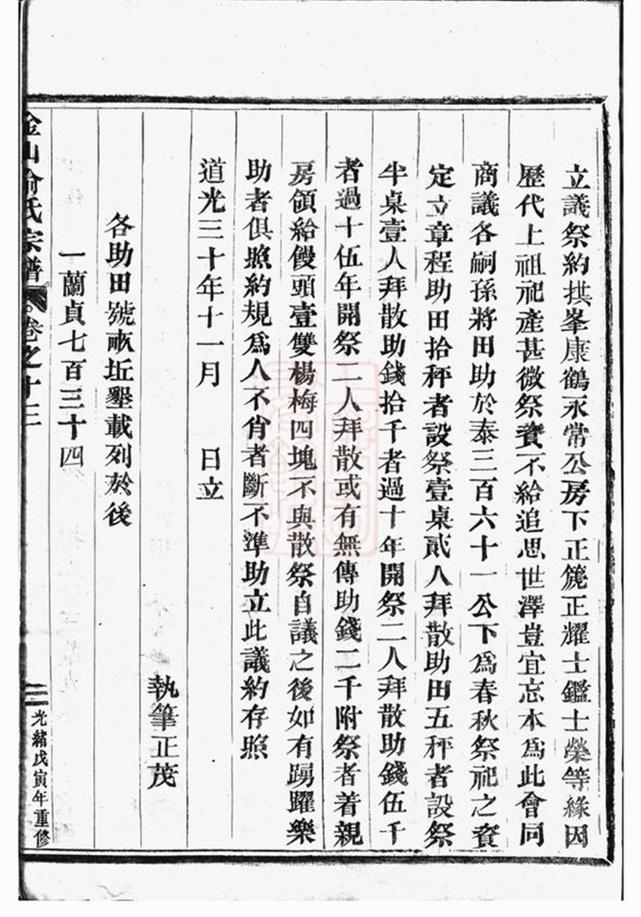 立議祭約拱峯康鶴永常公房下正篪正耀士鑑士榮等緣因
歷代上祖祀產甚微祭資不給追思世澤豈宜忘本爲此會同
商議各嗣孫將田助於泰三百六十一公下爲春秋祭祀之資
定立章程助田拾秤者設祭壹桌貳人拜散助田五秤者設祭
半桌壹人拜散助錢拾千者過十年開祭二人拜散助錢伍千
者過十伍年開祭一人拜散或有無傳助錢二千附祭者着親
房領給饅頭壹雙楊梅四塊不與散祭自議之後如有踴躍樂
助者俱照約規爲人不肖者斷不準助立此議約存照
道光三十年十一月　日立
執筆正茂
各助田號畝坵墾載列於後
一蘭貞七百三十四
金山俞氏宗譜 卷之十二
光緒戊寅年重修